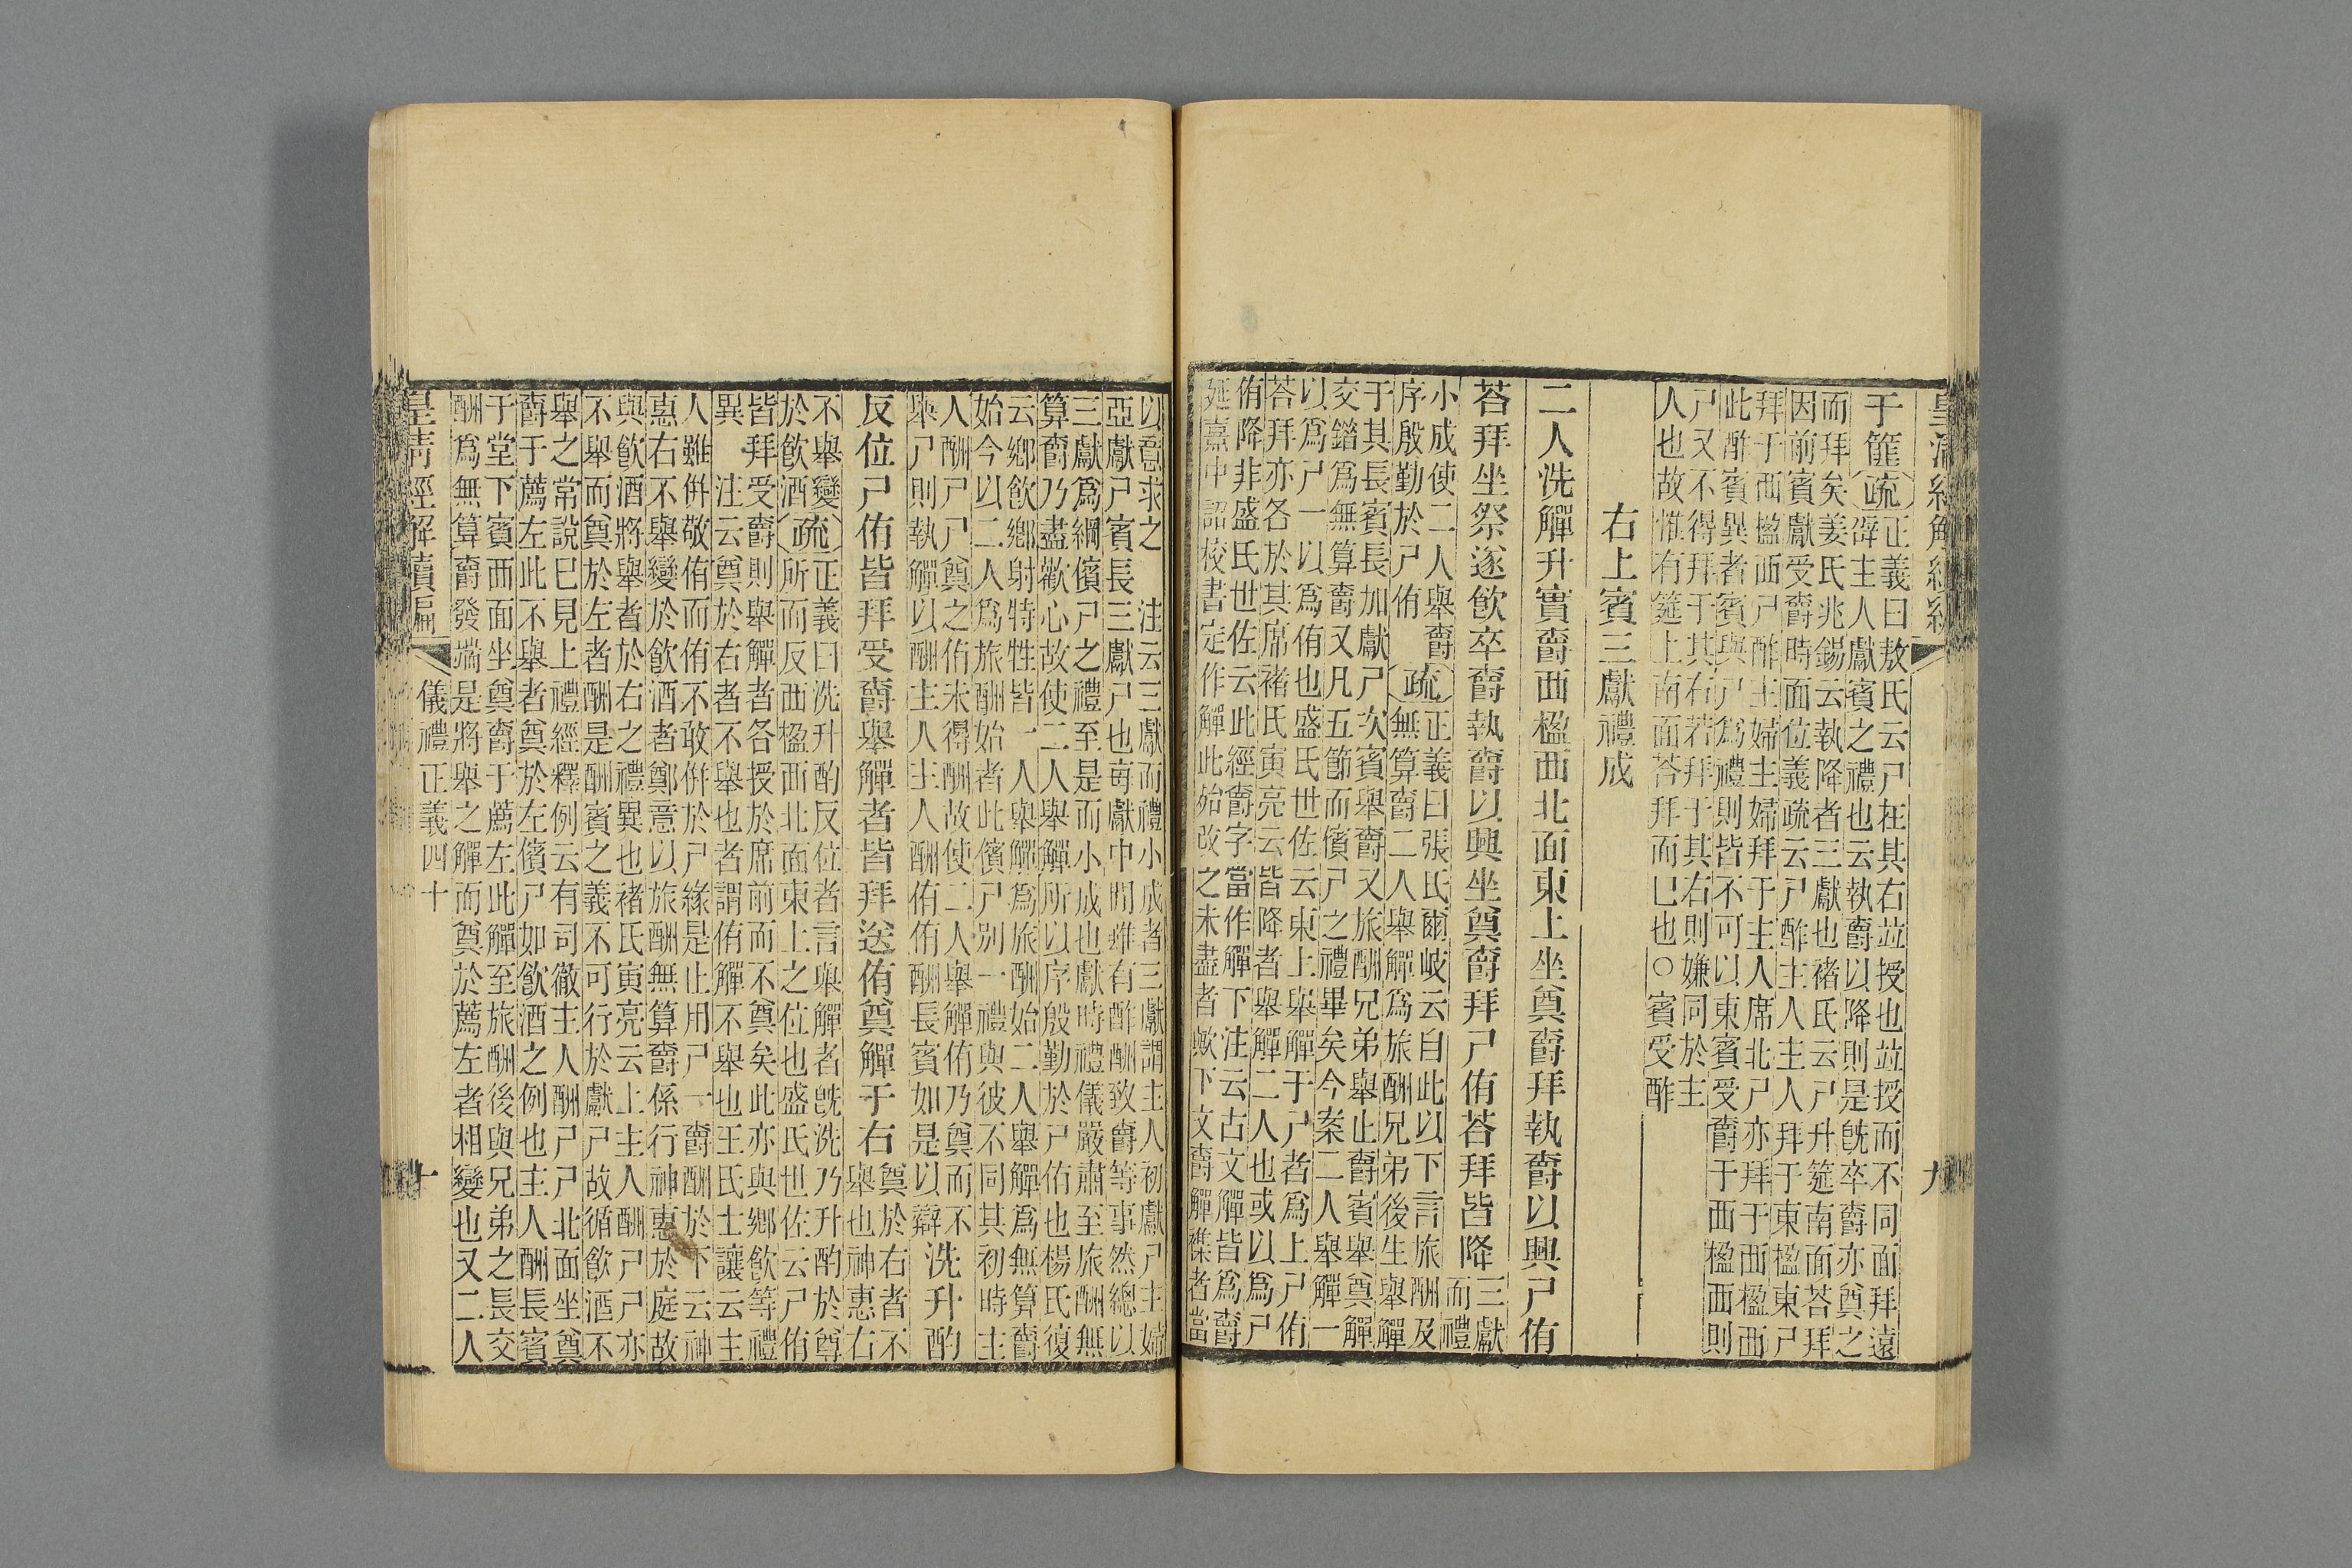 皇清經解續編
九
于篚疏正義曰敖氏云尸在其右竝授也竝授而不同面拜遠
辟主人獻賓之禮也云執爵以降則是旣卒爵亦奠之
而拜矣姜氏兆錫云執降者三獻也褚氏云尸升筵南面荅拜
因前賓獻受爵時面位義疏云尸酢主人主人拜于東楹東尸
拜于西楹西尸酢主婦主婦拜于主人席北尸亦拜于西楹西
此酢賓異者賓與尸爲禮則皆不可以東賓受爵于西楹西則
尸又不得拜于其右若拜于其右則嫌同於主
人也故惟有筵上南面荅拜而已也○賓受酢
右上賓三獻禮成
二人洗觶升實爵西楹西北面東上坐奠爵拜執爵以興尸侑
荅拜坐祭遂飮卒爵執爵以興坐奠爵拜尸侑荅拜皆降三獻
而禮
小成使二人舉爵
序殷勤於尸侑
疏正義曰張氏爾岐云自此以下言旅酬及
無算爵二人舉觶爲旅酬兄弟後生舉觶
于其長賓長加獻尸次賓舉爵又旅酬兄弟舉止爵賓舉奠觶
交錯爲無算爵又凡五節而儐尸之禮畢矣今案二人舉觶一
以爲尸一以爲侑也盛氏世佐云東上舉觶于尸者爲上尸侑
荅拜亦各於其席褚氏寅亮云皆降者舉觶二人也或以爲尸
侑降非盛氏世佐云此經爵字當作觶下注云古文觶皆爲爵
延熹中詔校書定作觶此始改之未盡者歟下文爵觶襍者當
以意求之　注云三獻而禮小成者三獻謂主人初獻尸主婦
亞獻尸賓長三獻尸也每獻中間雖有酢酬致爵等事然總以
三獻爲綱儐尸之禮至是而小成也獻時禮儀嚴肅至旅酬無
算爵乃盡歡心故使二人舉觶所以序殷勤於尸侑也楊氏復
云鄉飮鄉射特牲皆一人舉觶爲旅酬始二人舉觶爲無算爵
始今以二人爲旅酬始者此儐尸別一禮與彼不同其初時主
人酬尸尸奠之侑未得酬故使二人舉觶侑乃奠而不
舉尸則執觶以酬主人主人酬侑侑酬長賓如是以辯
洗升酌
反位尸侑皆拜受爵舉觶者皆拜送侑奠觶于右奠於右者不
舉也神惠右
不舉變
於飮酒
疏正義曰洗升酌反位者言舉觶者旣洗乃升酌於尊
所而反西楹西北面東上之位也盛氏世佐云尸侑
皆拜受爵則舉觶者各授於席前而不奠矣此亦與鄉飮等禮
異　注云奠於右者不舉也者謂侑觶不舉也王氏士讓云主
人雖併敬侑而侑不敢併於尸緣是止用尸一爵酬於下云神
惠右不舉變於飮酒者鄭意以旅酬無算爵係行神惠於庭故
與飮酒將舉者於右之禮異也褚氏寅亮云上主人酬尸尸亦
不舉而奠於左者酬是酬賓之義不可行於獻尸故循飮酒不
舉之常說已見上禮經釋例云有司徹主人酬尸尸北面坐奠
爵于薦左此不舉者奠於左儐尸如飮酒之例也主人酬長賓
于堂下賓西面坐奠爵于薦左此觶至旅酬後與兄弟之長交
酬爲無算爵發端是將舉之觶而奠於薦左者相變也又二人
皇清經解續編
儀禮正義四十
十